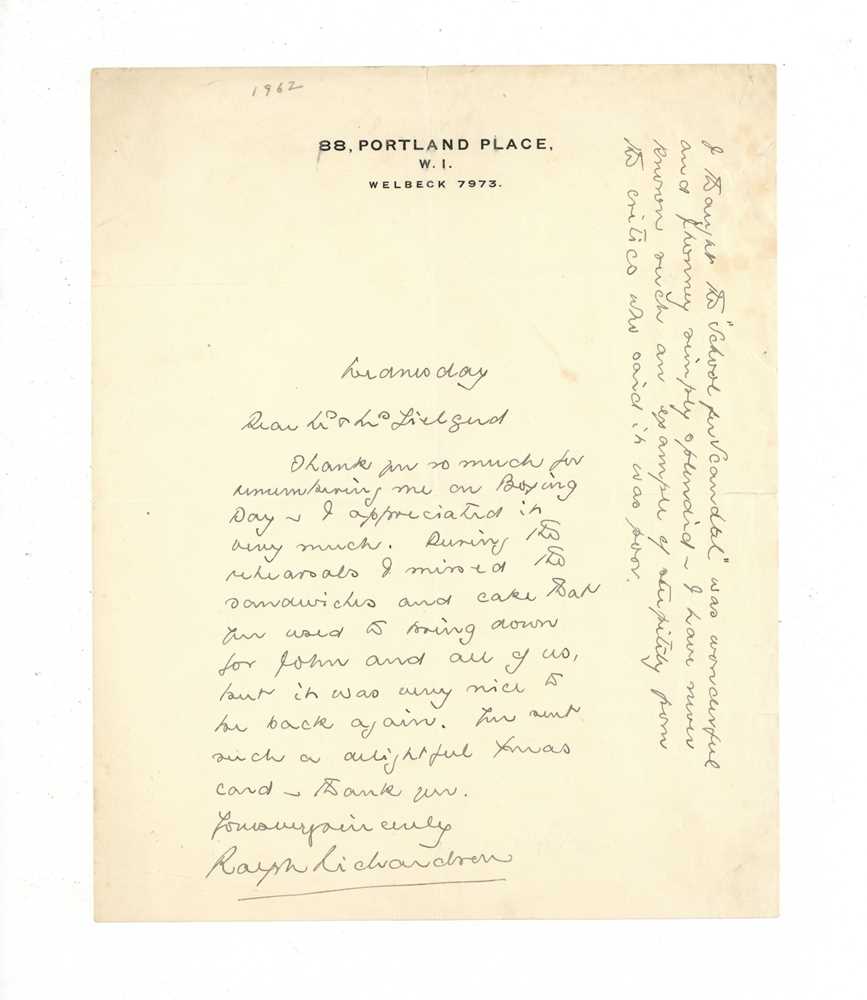 1962
88, PORTLAND PLACE,
W. 1.
WELBECK 7973.
Wednesday
Dear Mr & Mrs Gielgud
Thank you so much for
remembering me on Boxing
Day – I appreciated it
very much. During the
rehearsals I missed the
sandwiches and cake that
you used to bring down
for John and all of us,
but it was very nice to
be back again. You sent
such a delightful Xmas
card – thank you.
Yours very sincerely
Ralph Richardson
I thought the "School for Scandal" was wonderful
and Johnney simply splendid – I have never
known such an example of stupidity from
the critics who said it was poor.